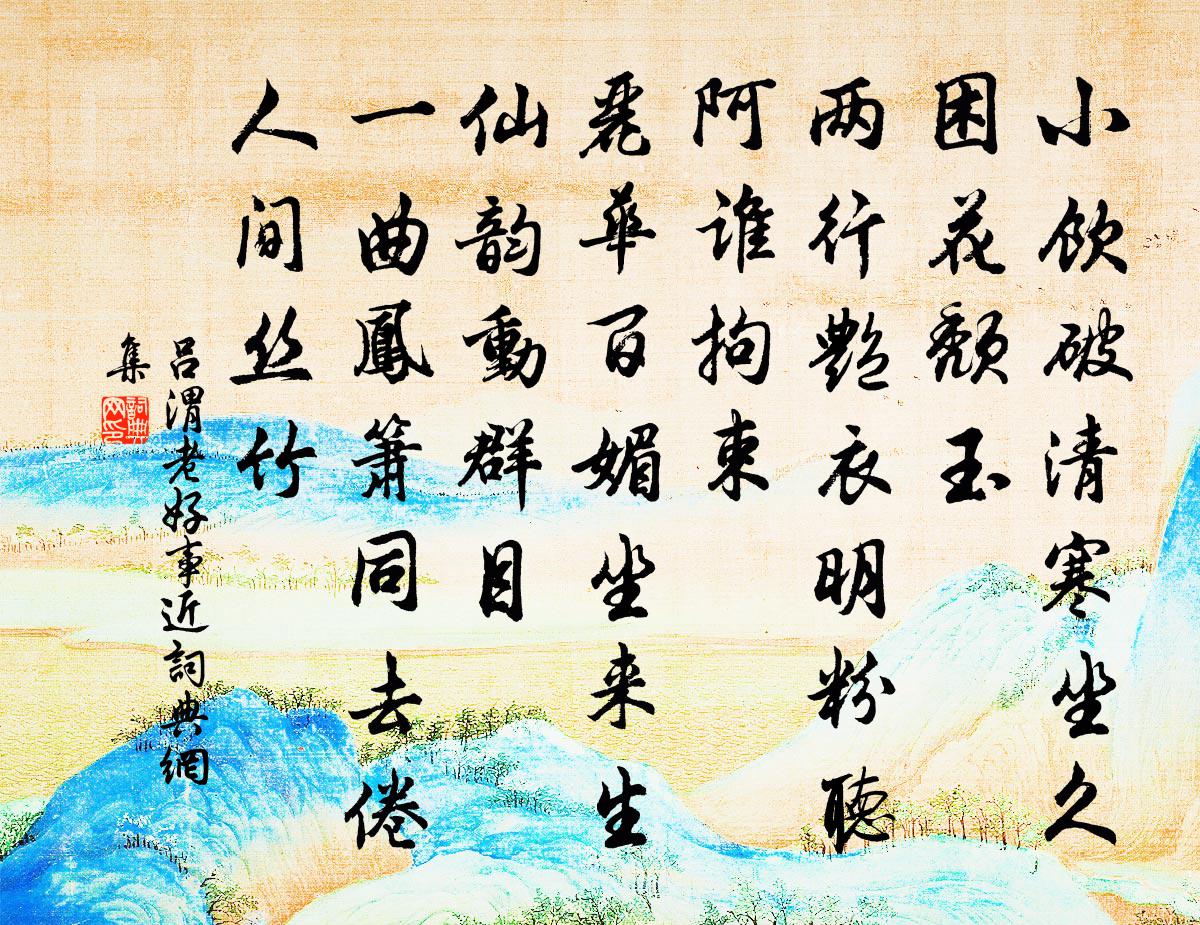 小饮破清寒坐久
困花颓玉
两行艶衣明粉聽
阿谁拘束
麗华百媚坐来生
仙韵動群目
一曲鳳箫同去倦
人间丝竹
吕渭老好事近詞典網
集
詞典网印